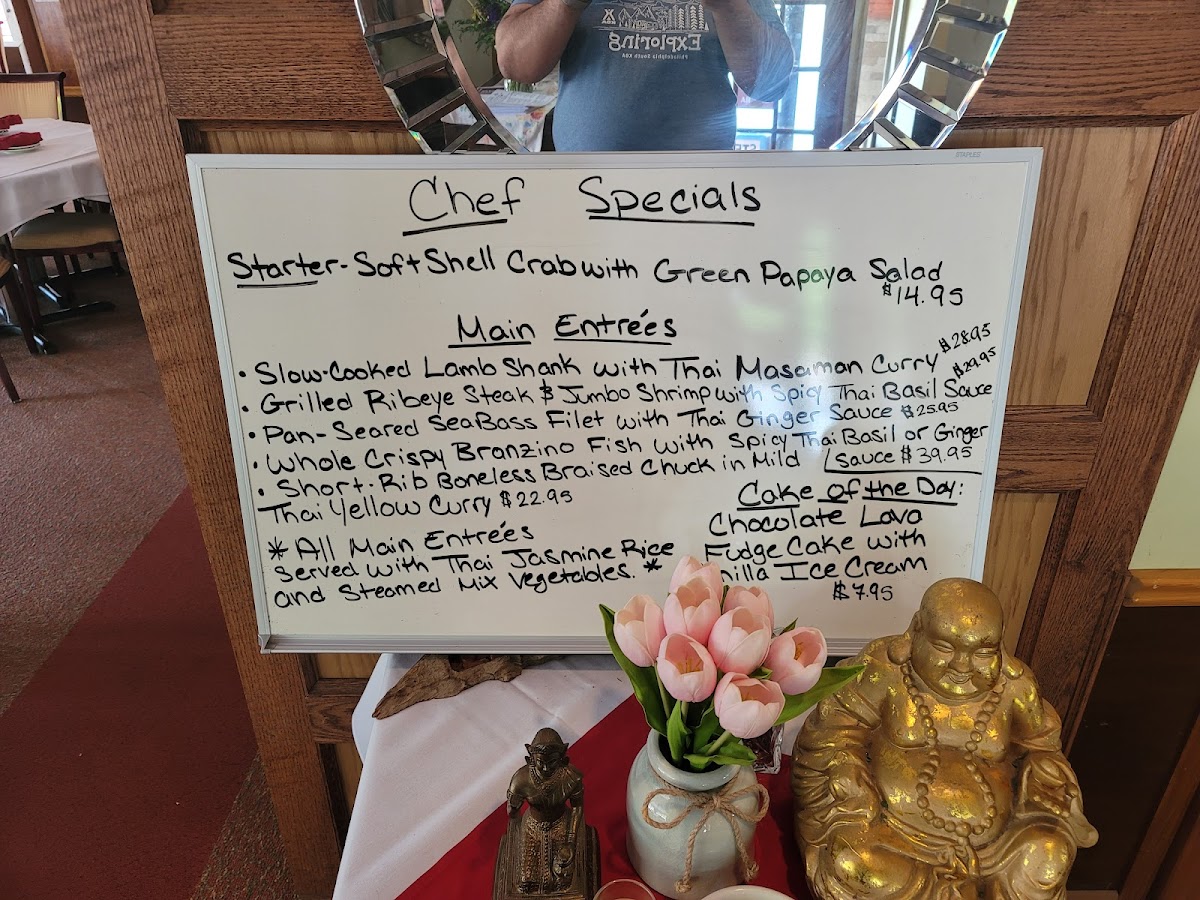 Exploring
Philadelphia South KOA
STAPLES
Chef Specials
Starter - Soft Shell Crab with Green Papaya Salad
$14.95
Main Entrées
• Slow-Cooked Lamb Shank with Thai Masaman Curry $28.95
• Grilled Ribeye Steak & Jumbo Shrimp with Spicy Thai Basil Sauce $29.95
• Pan-Seared SeaBass Filet with Thai Ginger Sauce $25.95
• Whole Crispy Bronzino Fish with Spicy Thai Basil or Ginger
Sauce $39.95
• Short-Rib Boneless Braised Chuck in Mild
Thai Yellow Curry $22.95
* All Main Entrées
served with Thai Jasmine Rice
and Steamed Mix Vegetables. *
Cake of the Day:
Chocolate Lava
Fudge Cake with
nilla Ice Cream
$7.95